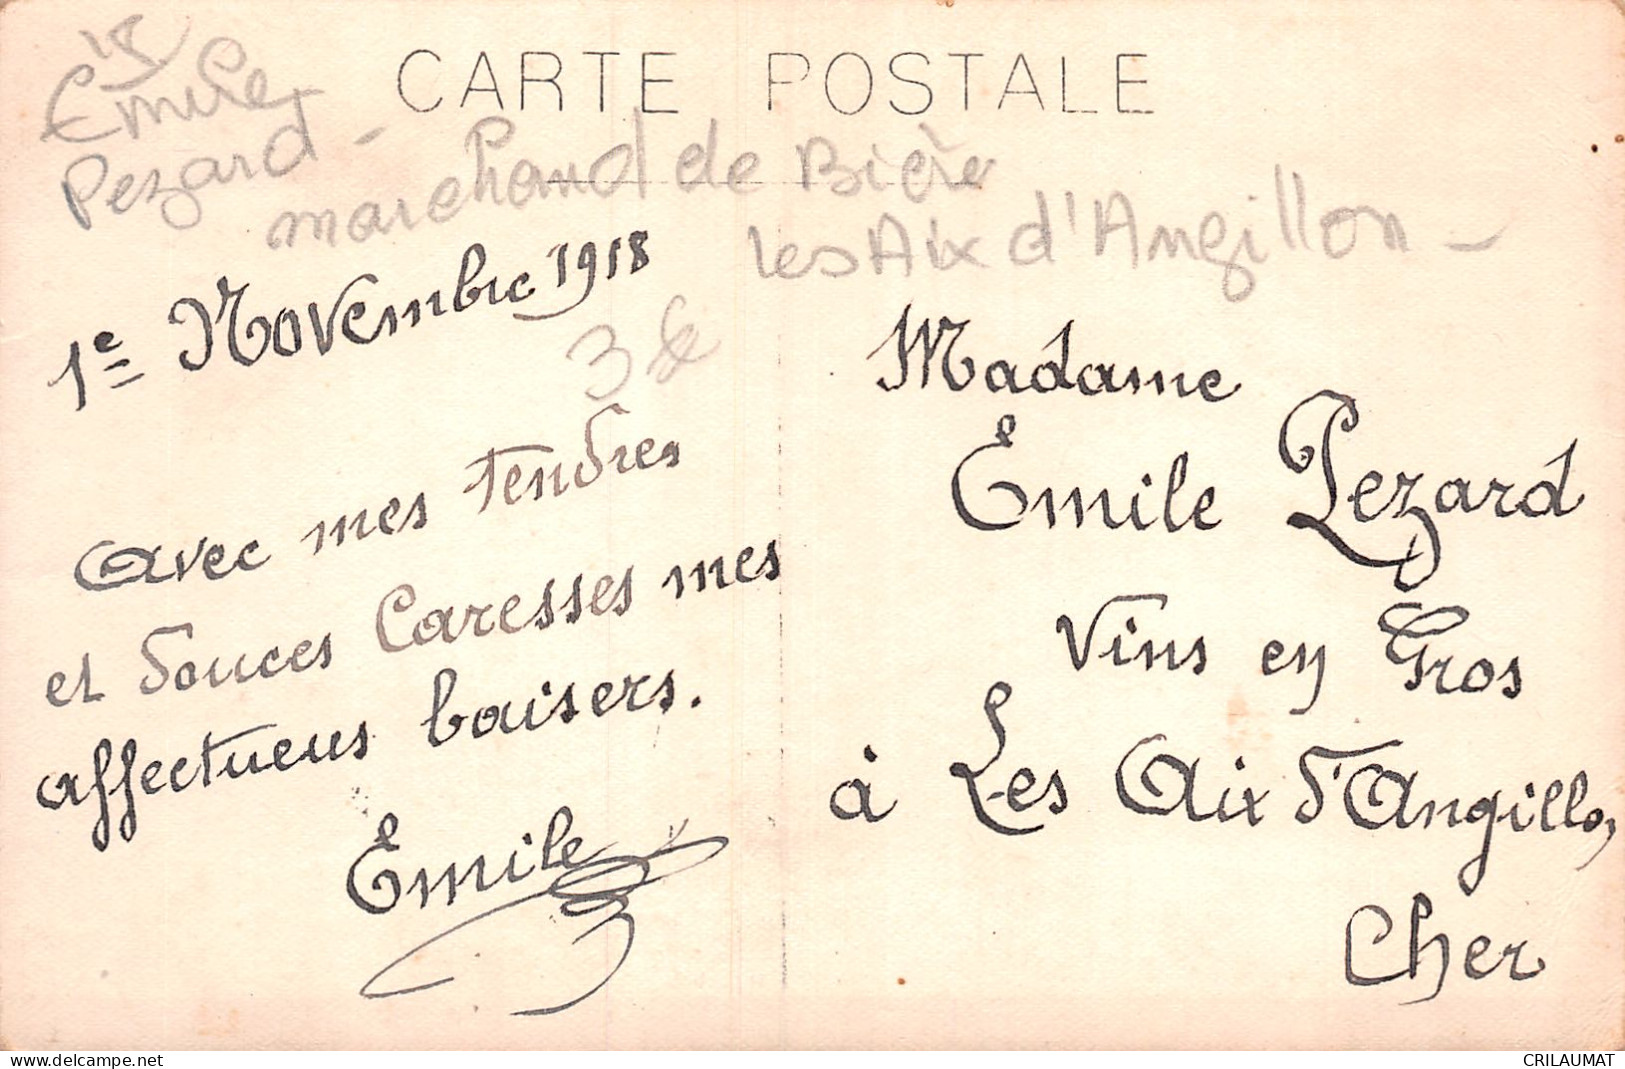 CARTE POSTALE
18
Emile
Pezard -
marchand de Bière
Les Aix d'Angillon -
1e Novembre 1918
3€
Avec mes tendres
et douces Caresses mes
affectueus baisers.
Emile
Madame
Emile Pezard
Vins en Gros
à Les Aix d'Angillon
Cher
www.delcampe.net
CRILAUMAT